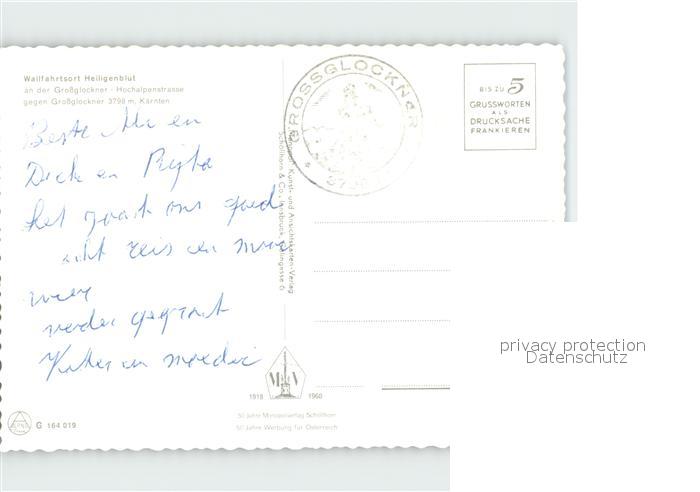 Wallfahrtsort Heiligenblut
an der Großglockner - Hochalpenstrasse
gegen Großglockner 3798 m, Kärnten
Beste
Dick en
het gaat ons goed
reis en mooi
weer
verder gegroet
en moeder
GROSSGLOCKNER
BIS ZU 5
GRUSSWORTEN
ALS
DRUCKSACHE
FRANKIEREN
Kunst- und Ansichtskarten-Verlag
Schöllhorn & Co., Innsbruck
M V
1918 1968
50 Jahre Monopolverlag Schöllhorn
50 Jahre Werbung für Österreich
G 164 019
privacy protection
Datenschutz